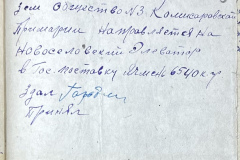 Зем Общество №3. Комикаровской
Примарии Направляется на
Новоселовский Элеватор
в Гос. поставку Ячмень 6540 кгр
Здал
Принял